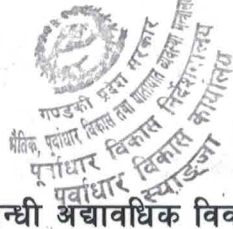 गण्डकी प्रदेश सरकार
भौतिक, पूर्वाधार विकास तथा यातायात व्यवस्था मन्त्रालय
पूर्वाधार विकास निर्देशनालय
पूर्वाधार विकास कार्यालय
स्याङ्जा
न्धी अद्यावधिक विव